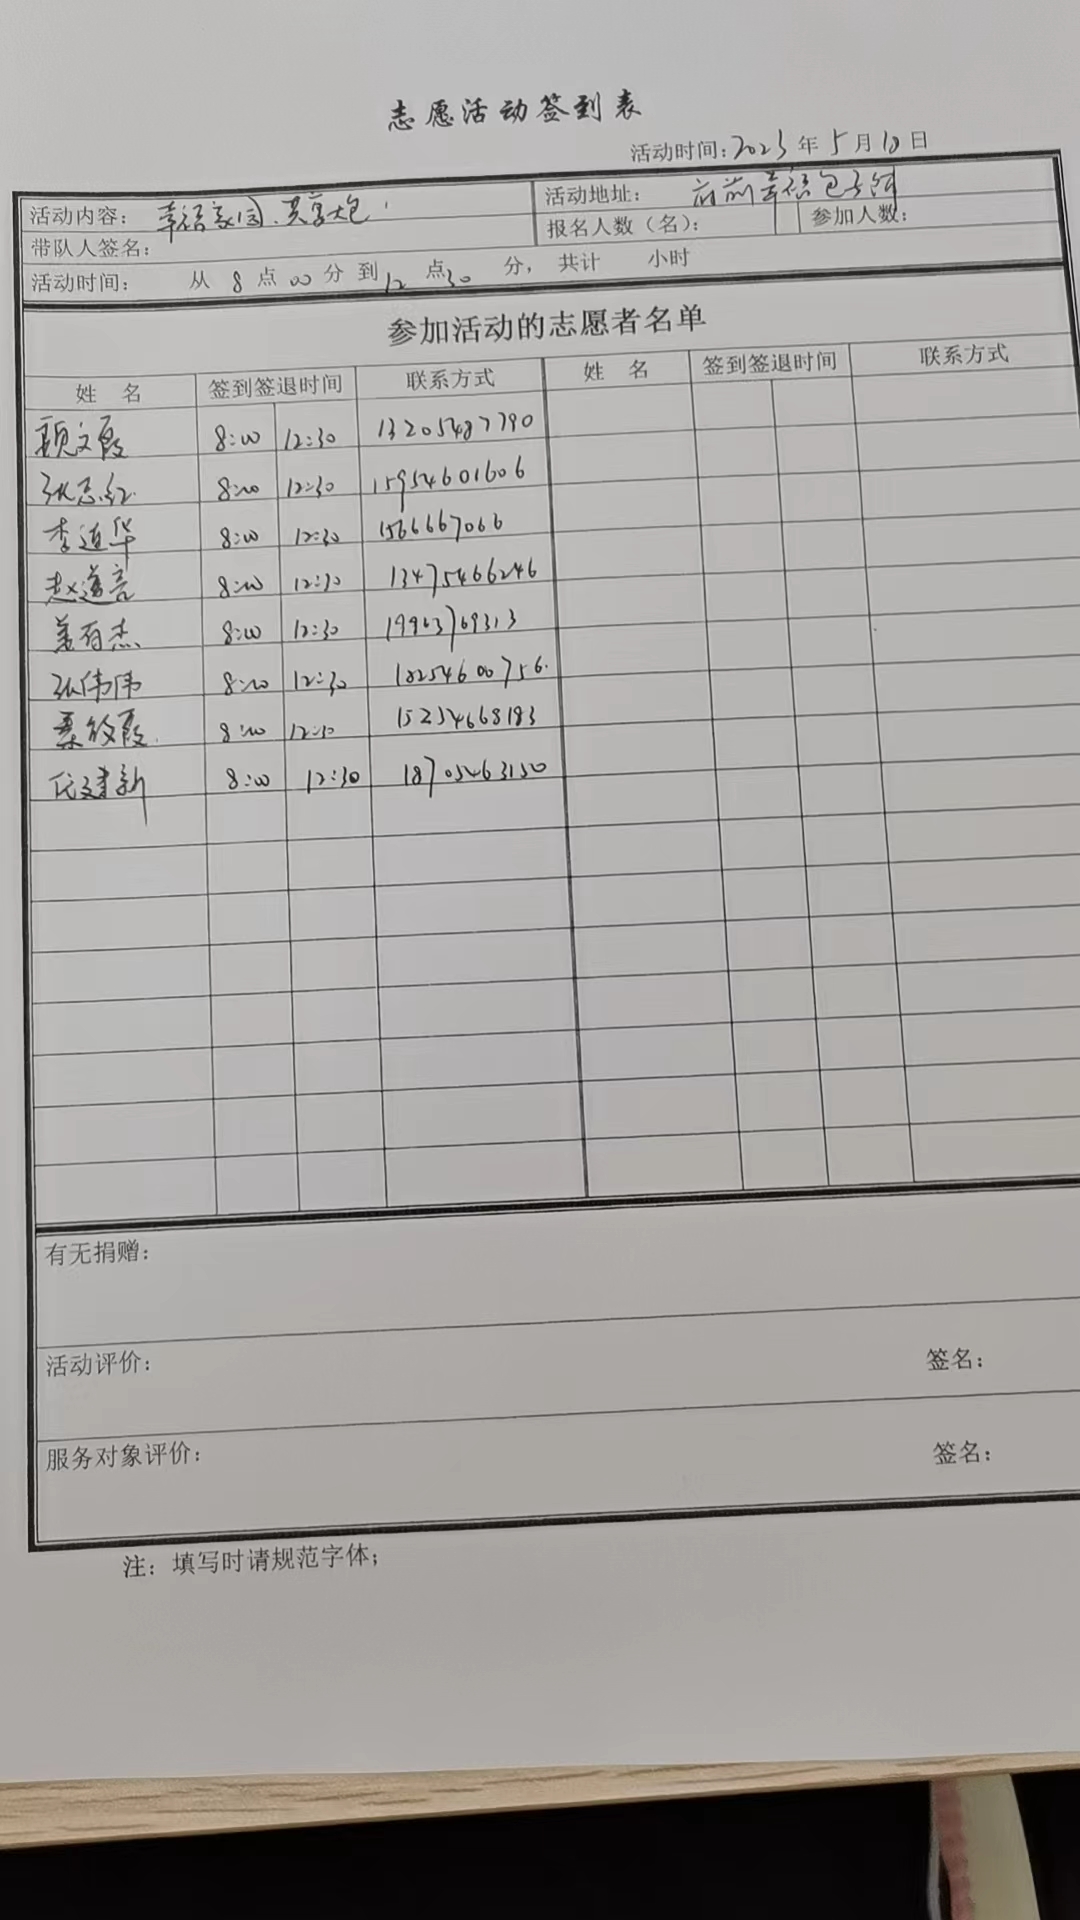 志愿活动签到表
活动时间:2023年5月10日
活动内容: 幸福家园.共享大包 活动地址: 府前幸福包子铺
带队人签名: 报名人数(名): 参加人数:
活动时间: 从 8 点 00 分 到 12 点 30 分, 共计 小时
参加活动的志愿者名单
姓 名 签到签退时间 联系方式 姓 名 签到签退时间 联系方式
顾文霞 8:00 12:30 13205487790
张志红 8:00 12:30 15954601606
李道华 8:00 12:30 1566667066
赵莲亮 8:00 12:30 13475466246
姜有杰 8:00 12:30 19963769313
张伟伟 8:00 12:30 18254600756
8:00 12:30 15254668183
任建新 8:00 12:30 18705463150
有无捐赠:
活动评价: 签名:
服务对象评价: 签名:
注: 填写时请规范字体;